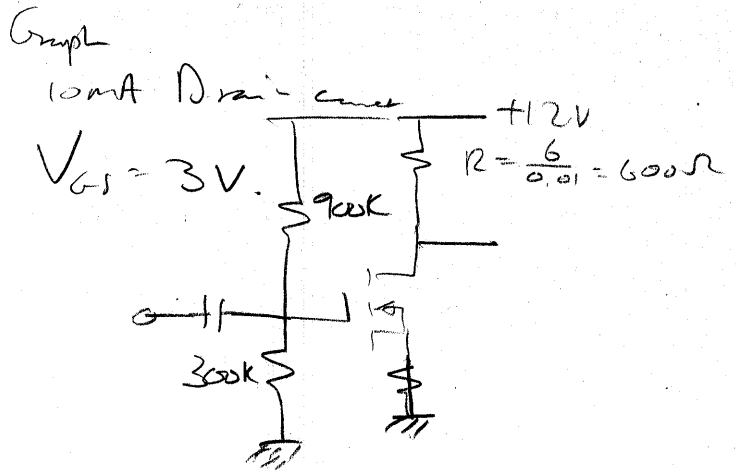 Graph
10mA Drain current
+12V
V_GS = 3V.
R = 6/0.01 = 600Ω
900K
300K